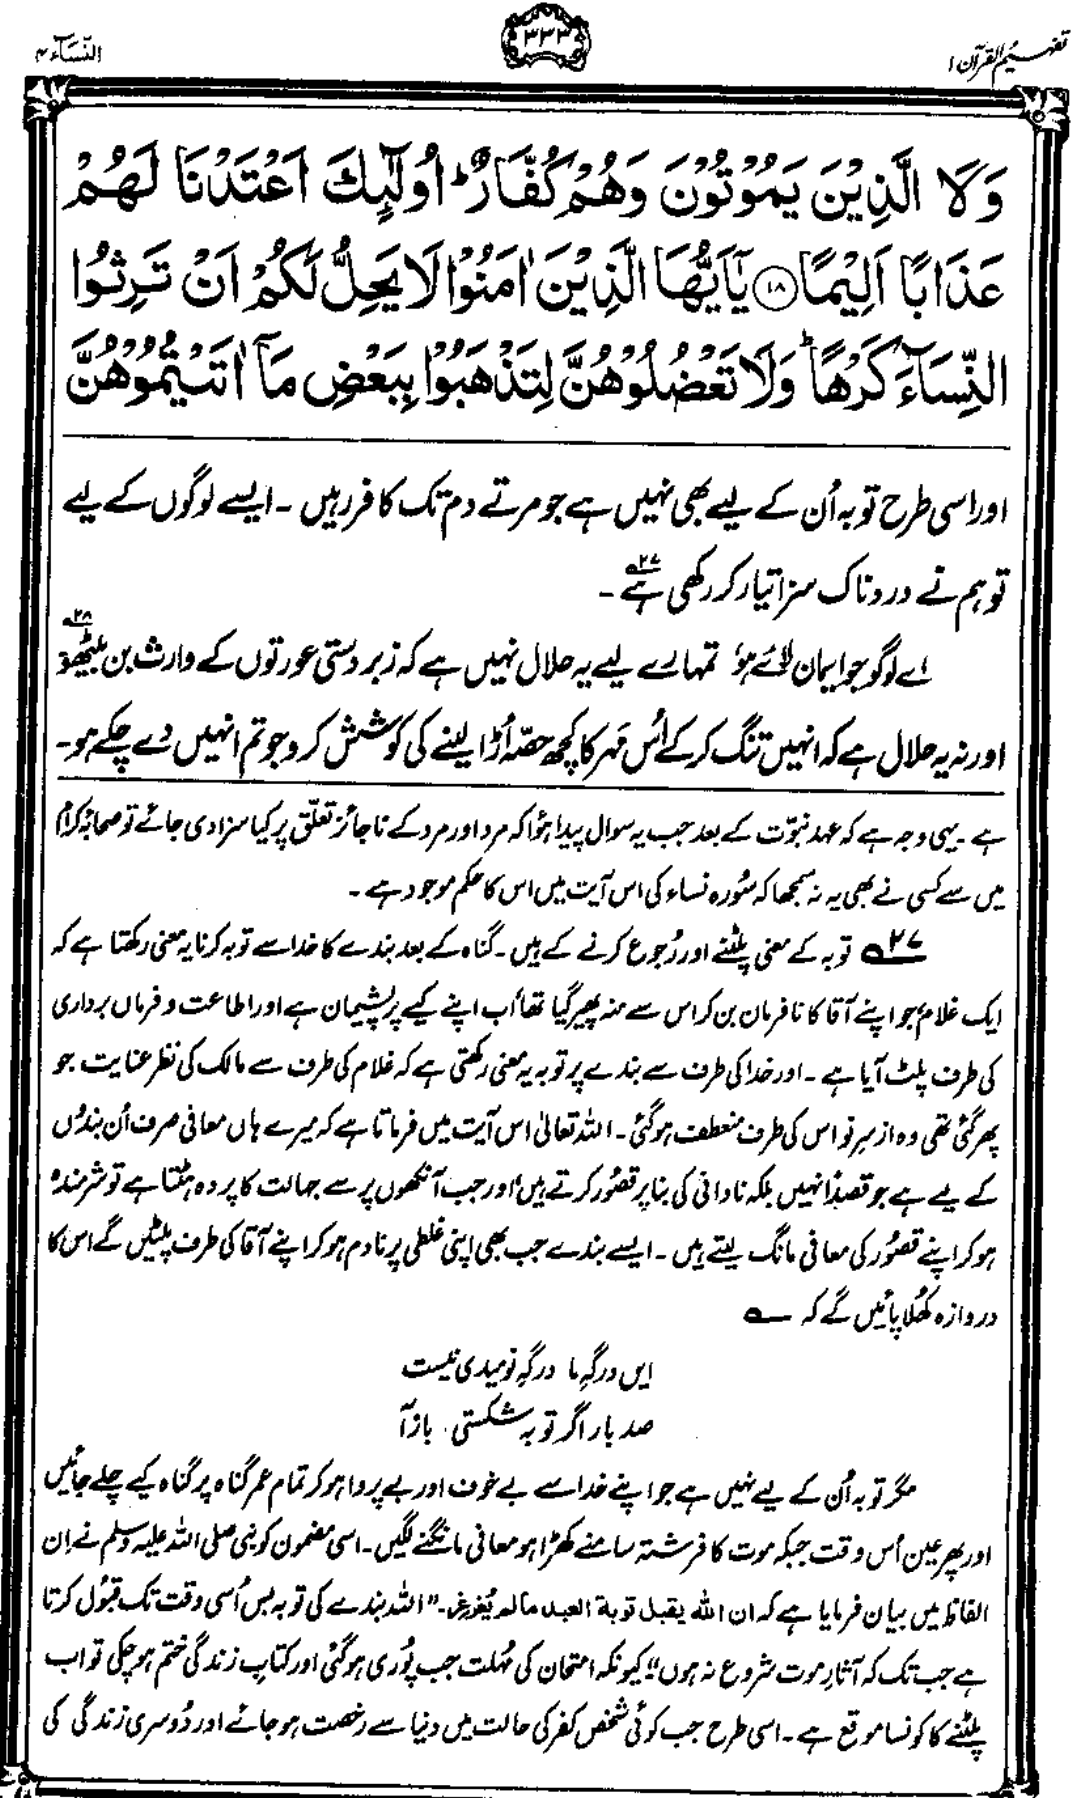 تفہیم القرآن ۱
۳۳۳
النسآء ۴
وَلَا الَّذِيْنَ يَمُوْتُوْنَ وَهُمْ كُفَّارٌ ؕ اُولٰٓئِكَ اَعْتَدْنَا لَهُمْ
عَذَابًا اَلِيْمًا ۱۸ يٰٓاَيُّهَا الَّذِيْنَ اٰمَنُوْا لَا يَحِلُّ لَكُمْ اَنْ تَرِثُوا
النِّسَآءَ كَرْهًا ؕ وَلَا تَعْضُلُوْهُنَّ لِتَذْهَبُوْا بِبَعْضِ مَآ اٰتَيْتُمُوْهُنَّ
اور اسی طرح توبہ اُن کے لیے بھی نہیں ہے جو مرتے دم تک کافر رہیں۔ ایسے لوگوں کے لیے
تو ہم نے دردناک سزا تیار کر رکھی ہے ۲۷۔
اے لوگو جو ایمان لائے ہو، تمہارے لیے یہ حلال نہیں ہے کہ زبردستی عورتوں کے وارث بن بیٹھو ۲۸
اور نہ یہ حلال ہے کہ انہیں تنگ کر کے اُس مَہر کا کچھ حصّہ اُڑا لینے کی کوشش کرو جو تم انہیں دے چکے ہو۔
ہے۔ یہی وجہ ہے کہ عہد نبوّت کے بعد جب یہ سوال پیدا ہؤا کہ مرد اور مرد کے ناجائز تعلّق پر کیا سزا دی جائے تو صحابۂ کرام
میں سے کسی نے بھی یہ نہ سمجھا کہ سُورہ نساء کی اس آیت میں اس کا حکم موجود ہے۔
۲۷ توبہ کے معنی پلٹنے اور رُجوع کرنے کے ہیں۔ گناہ کے بعد بندے کا خدا سے توبہ کرنا یہ معنی رکھتا ہے کہ
ایک غلام، جو اپنے آقا کا نافرمان بن کر اس سے منہ پھیر گیا تھا، اب اپنے کیے پر پشیمان ہے اور اطاعت و فرماں برداری
کی طرف پلٹ آیا ہے۔ اور خدا کی طرف سے بندے پر توبہ یہ معنی رکھتی ہے کہ غلام کی طرف سے مالک کی نظرِ عنایت جو
پھر گئی تھی وہ از سرِ نو اس کی طرف منعطف ہو گئی۔ اللہ تعالیٰ اس آیت میں فرماتا ہے کہ میرے ہاں معافی صرف اُن بندوں
کے لیے ہے جو قصداً نہیں بلکہ نادانی کی بنا پر قصُور کرتے ہیں، اور جب آنکھوں پر سے جہالت کا پردہ ہٹتا ہے تو شرمندہ
ہو کر اپنے قصُور کی معافی مانگ لیتے ہیں۔ ایسے بندے جب بھی اپنی غلطی پر نادم ہو کر اپنے آقا کی طرف پلٹیں گے اس کا
دروازہ کھُلا پائیں گے کہ ؎
ایں درگہِ ما درگہِ نومیدی نیست
صد بار اگر توبہ شکستی، باز آ
مگر توبہ اُن کے لیے نہیں ہے جو اپنے خدا سے بے خوف اور بے پروا ہو کر تمام عمر گناہ پر گناہ کیے چلے جائیں
اور پھر عین اُس وقت جبکہ موت کا فرشتہ سامنے کھڑا ہو معافی مانگنے لگیں۔ اسی مضمون کو نبی صلی اللہ علیہ وسلم نے اِن
الفاظ میں بیان فرمایا ہے کہ ان اللہ یقبل توبۃ العبد مالم یُغرغر۔ ”اللہ بندے کی توبہ بس اُسی وقت تک قبُول کرتا
ہے جب تک کہ آثارِ موت شروع نہ ہوں“ کیونکہ امتحان کی مُہلت جب پُوری ہو گئی اور کتابِ زندگی ختم ہو چکی تو اب
پلٹنے کا کونسا موقع ہے۔ اسی طرح جب کوئی شخص کفر کی حالت میں دنیا سے رخصت ہو جائے اور دُوسری زندگی کی